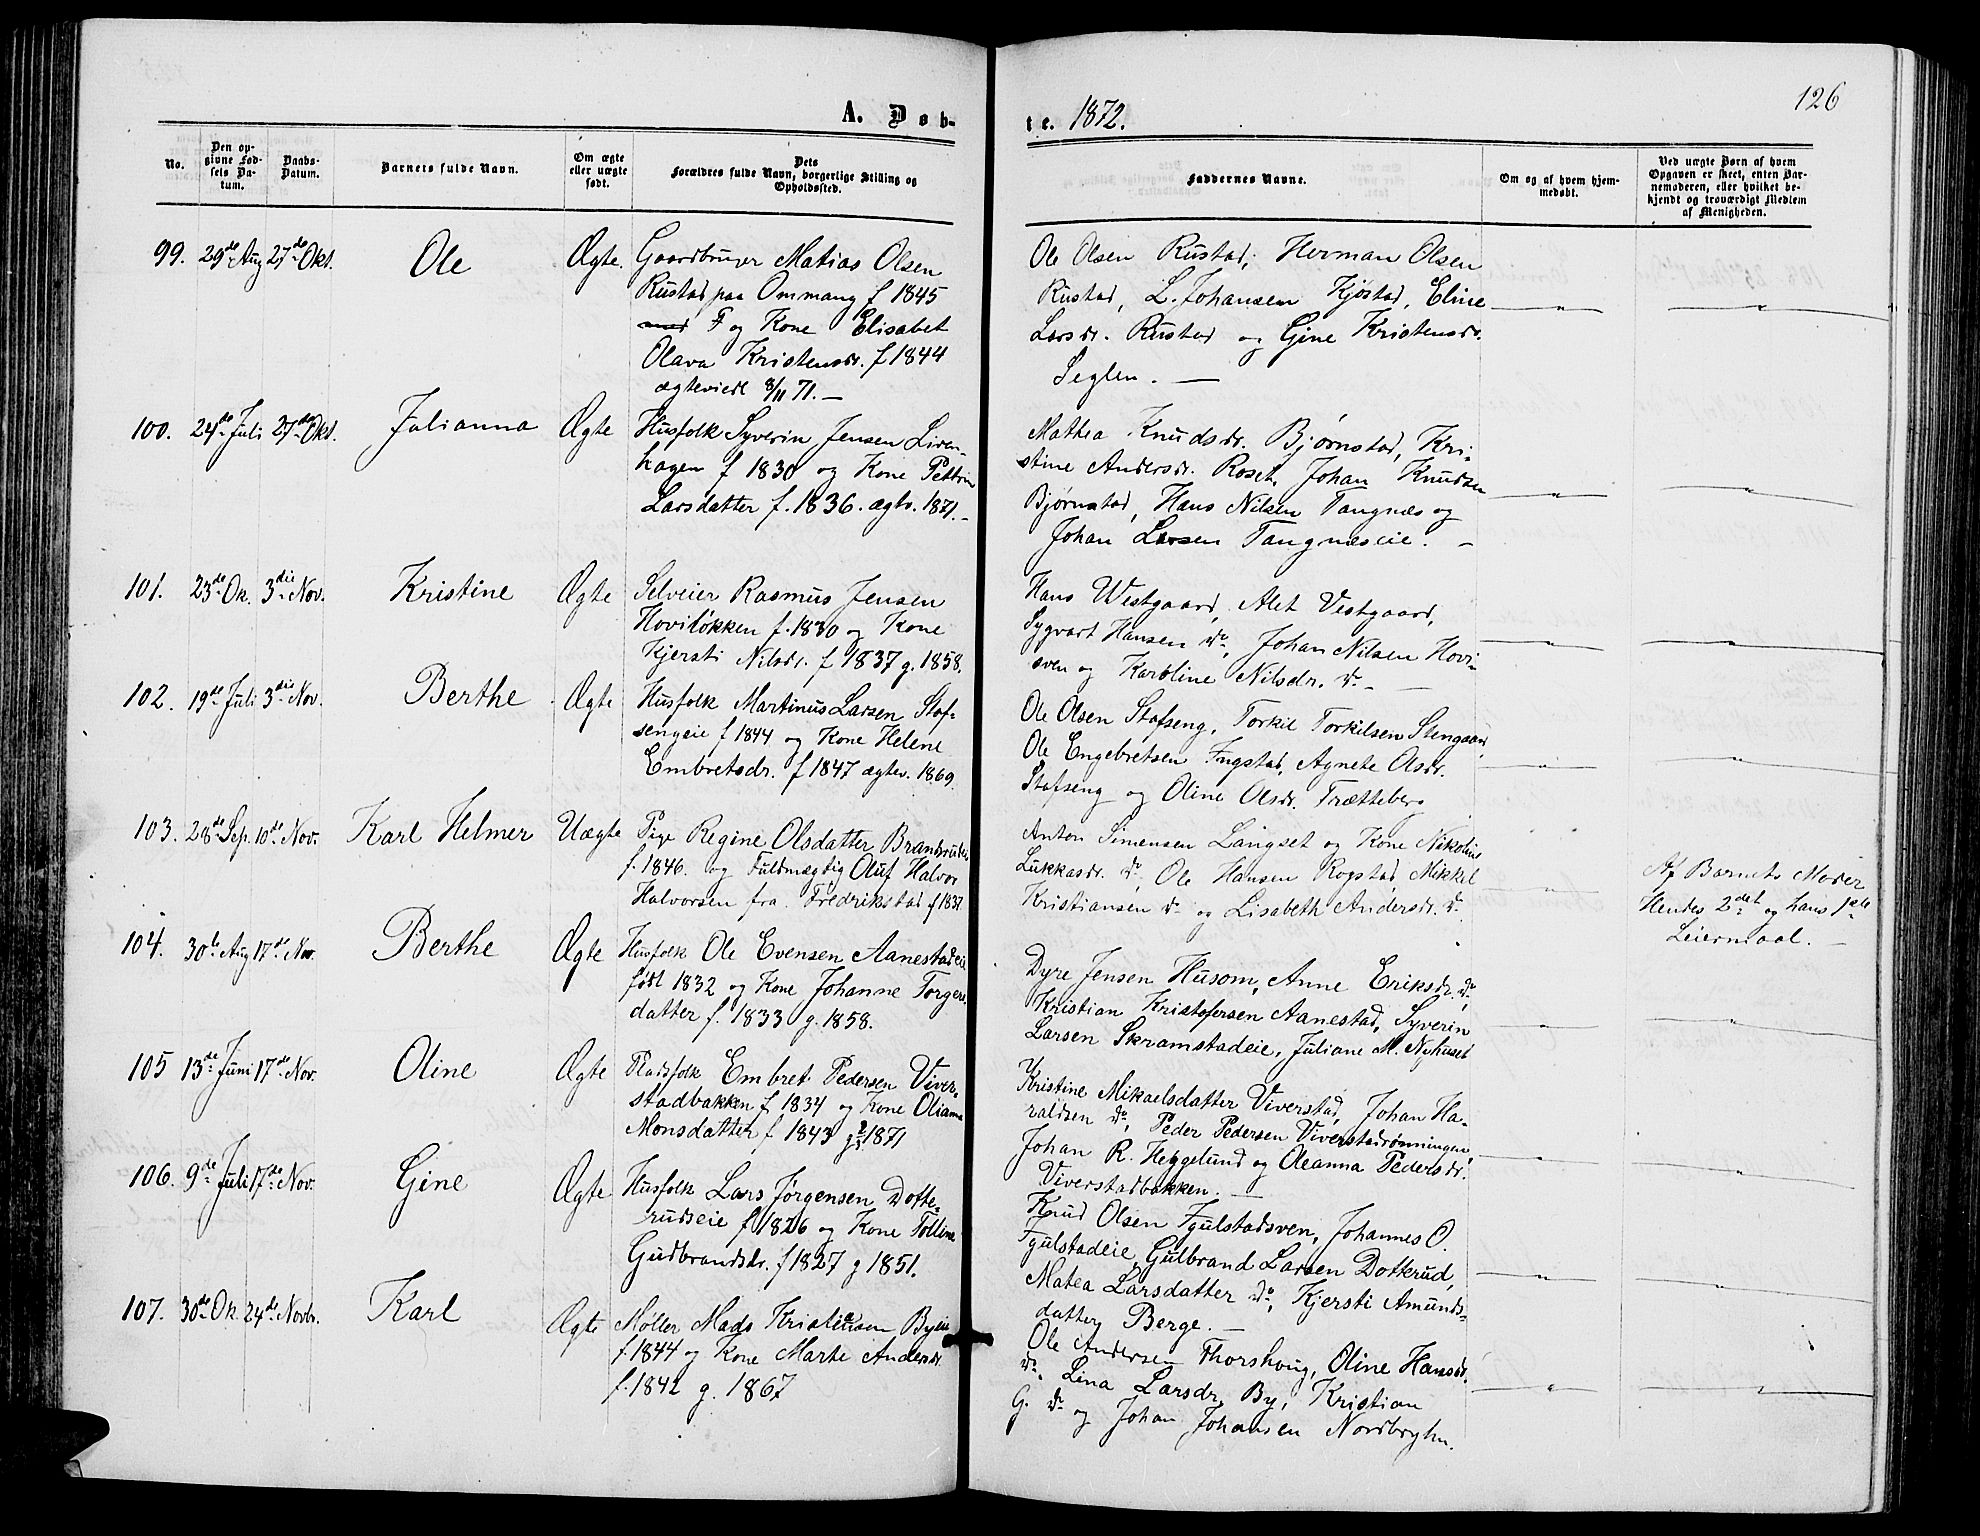 126
A. Døb-
te. 1872.
No.
Den op-
givne Fød-
sels Da-
tum.
Daabs-
Datum.
Barnets fulde Navn.
Om ægte
eller uægte
født.
Dets
Forældres fulde Navn, borgerlige Stilling og
Opholdssted.
Faddernes Navne.
Om og af hvem hjem-
medøbt.
Ved uægte Børn af hvem
Opgaven er skeet, enten Bar-
nemoderen, eller hvilket be-
kjendt og troværdigt Medlem
af Menigheden.
99. 29de Aug 27de Okt. Ole Ægte.
Gaardbruger Matias Olsen
Rustad paa Ommang f 1845
F og Kone Elisabet
Olava Kristensdr. f 1844
ægteviedt 8/11 71. —
Ole Olsen Rustad, Herman Olsen
Rustad, L. Johansen Kjøstad, Eline
Larsdr. Rustad og Gine Kristensdr.
Seglen. —
100. 24de Juli 27de Okt. Julianna Ægte
Husfolk Syverin Jensen Liden-
hagen f 1830 og Kone Pettrin
Larsdatter f. 1836. ægtv. 1871. -
Mathea Knudsdr. Bjørnstad, Kri-
stine Andersdr. Roset, Johan Knudsen
Bjørnstad, Hans Nilsen Tangnæs og
Johan Larsen Tangnæseie. -
101. 23de Ok. 3die Nov. Kristine Ægte
Selveier Rasmus Jensen
Hovi løkken f. 1830 og Kone
Kjersti Nilsdr. f 1837 g. 1858.
Hans Westgaard, Alet Vestgaard,
Sygvart Hansen do, Johan Nilsen Hovi-
sven og Karoline Nilsdr. do -
102. 19de Juli 3die Nov. Berthe Ægte
Husfolk Martinus Larsen Stof-
sengeie f 1844 og Kone Helene
Embretsdr. f 1847 ægtev. 1869.
Ole Olsen Stofseng, Torkil Torkilsen Stengaard
Ole Engebretsen Ingstad, Agnete Olsdr.
Stofseng og Oline Olsdr. Trætteberg
103. 28de Sep. 10de Nov. Karl Helmer Uægte
Pige Regine Olsdatter Brandrudei
f. 1846. og Fuldmægtig Oluf Halvor
Halvorsen fra Fredrikstad f 1837.
Anton Simensen Langset og Kone Nikoline
Lukkasdr. do, Ole Hansen Rogstad, Mikkel
Kristiansen do og Lisabeth Andersdr. do.
Af Barnets Moder
Hendes 2det og hans 1ste
Leiermaal. —
104. 30te Aug 17de Nov. Berthe Ægte
Husfolk Ole Evensen Aanestadeie
født 1832 og Kone Johanne Torgers
datter f. 1833 g. 1858.
Dyre Jensen Husom, Anne Eriksdr. do
Kristian Kristofersen Aanestad, Syverin
Larsen Skramstadeie, Juliane M. Nyhuset
105 13de Juni 17de Nov. Oline Ægte
Pladsfolk Embret Pedersen Viver-
stadbakken f 1834 og Kone Olianna
Monsdatter f 1843 g 1871
Kristine Mikaelsdatter Viverstad, Johan Ha-
raldsen do, Peder Pedersen Viverstadrønningen,
Johan R. Heggelund og Oleanna Pedersdr.
Viverstadbakken. —
106. 9de Juli 17de Nov. Gine Ægte
Husfolk Lars Jørgensen Dotte-
rudseie f 1826 og Kone Tolline
Gudbrandsdr. f 1827 g 1851.
Knud Olsen Fgulstadsven, Johannes O.
Fgulstadeie, Gulbrand Larsen Dotkrud,
Matea Larsdatter do, Kjersti Amunds-
datter Berge. —
107. 30de Ok. 24de Novbr. Karl Ægte
Møller Mads Kristensen Byeie
f. 1844 og Kone Marte Andersdr
f. 1842 g. 1867
Ole Andersen Thorshoug, Oline Hansdr.
do, Lina Larsdr. By, Kristian
G. do og Johan Johansen Nordbryhn.